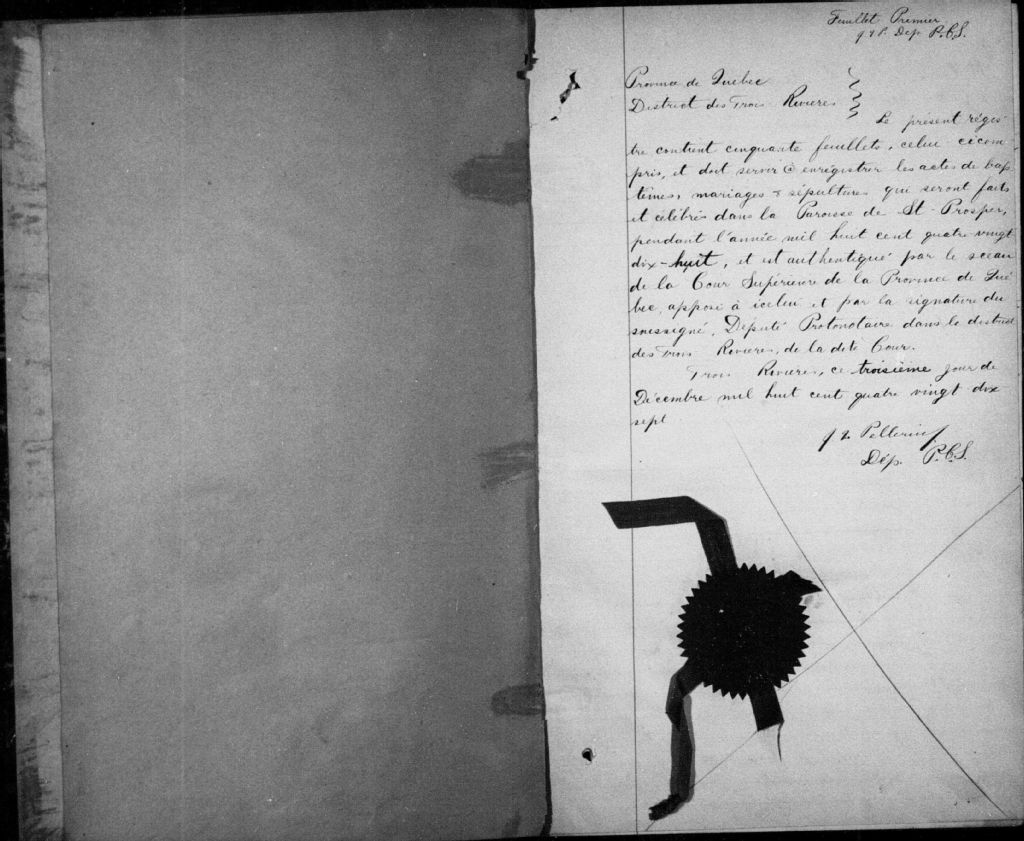 Feuillet Premier
Dép. P.C.S.
Province de Quebec
District des Trois Rivieres
Le présent régis-
tre contient cinquante feuillets, celui ci com
pris, et doit servir à enrégistrer les actes de bap
têmes, mariages & sépultures qui seront faits
et célébrés dans la Paroisse de St-Prosper,
pendant l'année mil huit cent quatre-vingt
dix-huit, et est authentiqué par le sceau
de la Cour Supérieure de la Province de Qué
bec, apposé à icelui et par la signature du
soussigné, Député Protonotaire dans le district
des Trois Rivieres, de la dite Cour.
Trois Rivieres, ce troisième jour de
Décembre mil huit cent quatre vingt dix
sept
Pellerin
Dép. P.C.S.